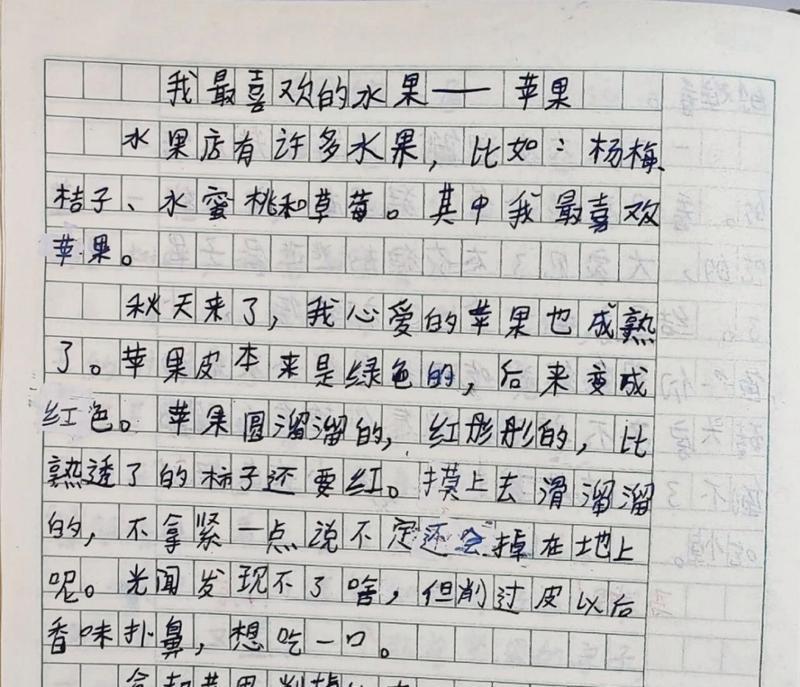 我最喜欢的水果——苹果
水果店有许多水果，比如：杨梅、
桔子、水蜜桃和草莓。其中我最喜欢
苹果。
秋天来了，我心爱的苹果也成熟
了。苹果皮本来是绿色的，后来变成
红色。苹果圆溜溜的，红彤彤的，比
熟透了的柿子还要红。摸上去滑溜溜
的，不拿紧一点说不定还会掉在地上
呢。光闻发现不了啥，但削过皮以后
香味扑鼻，想吃一口。